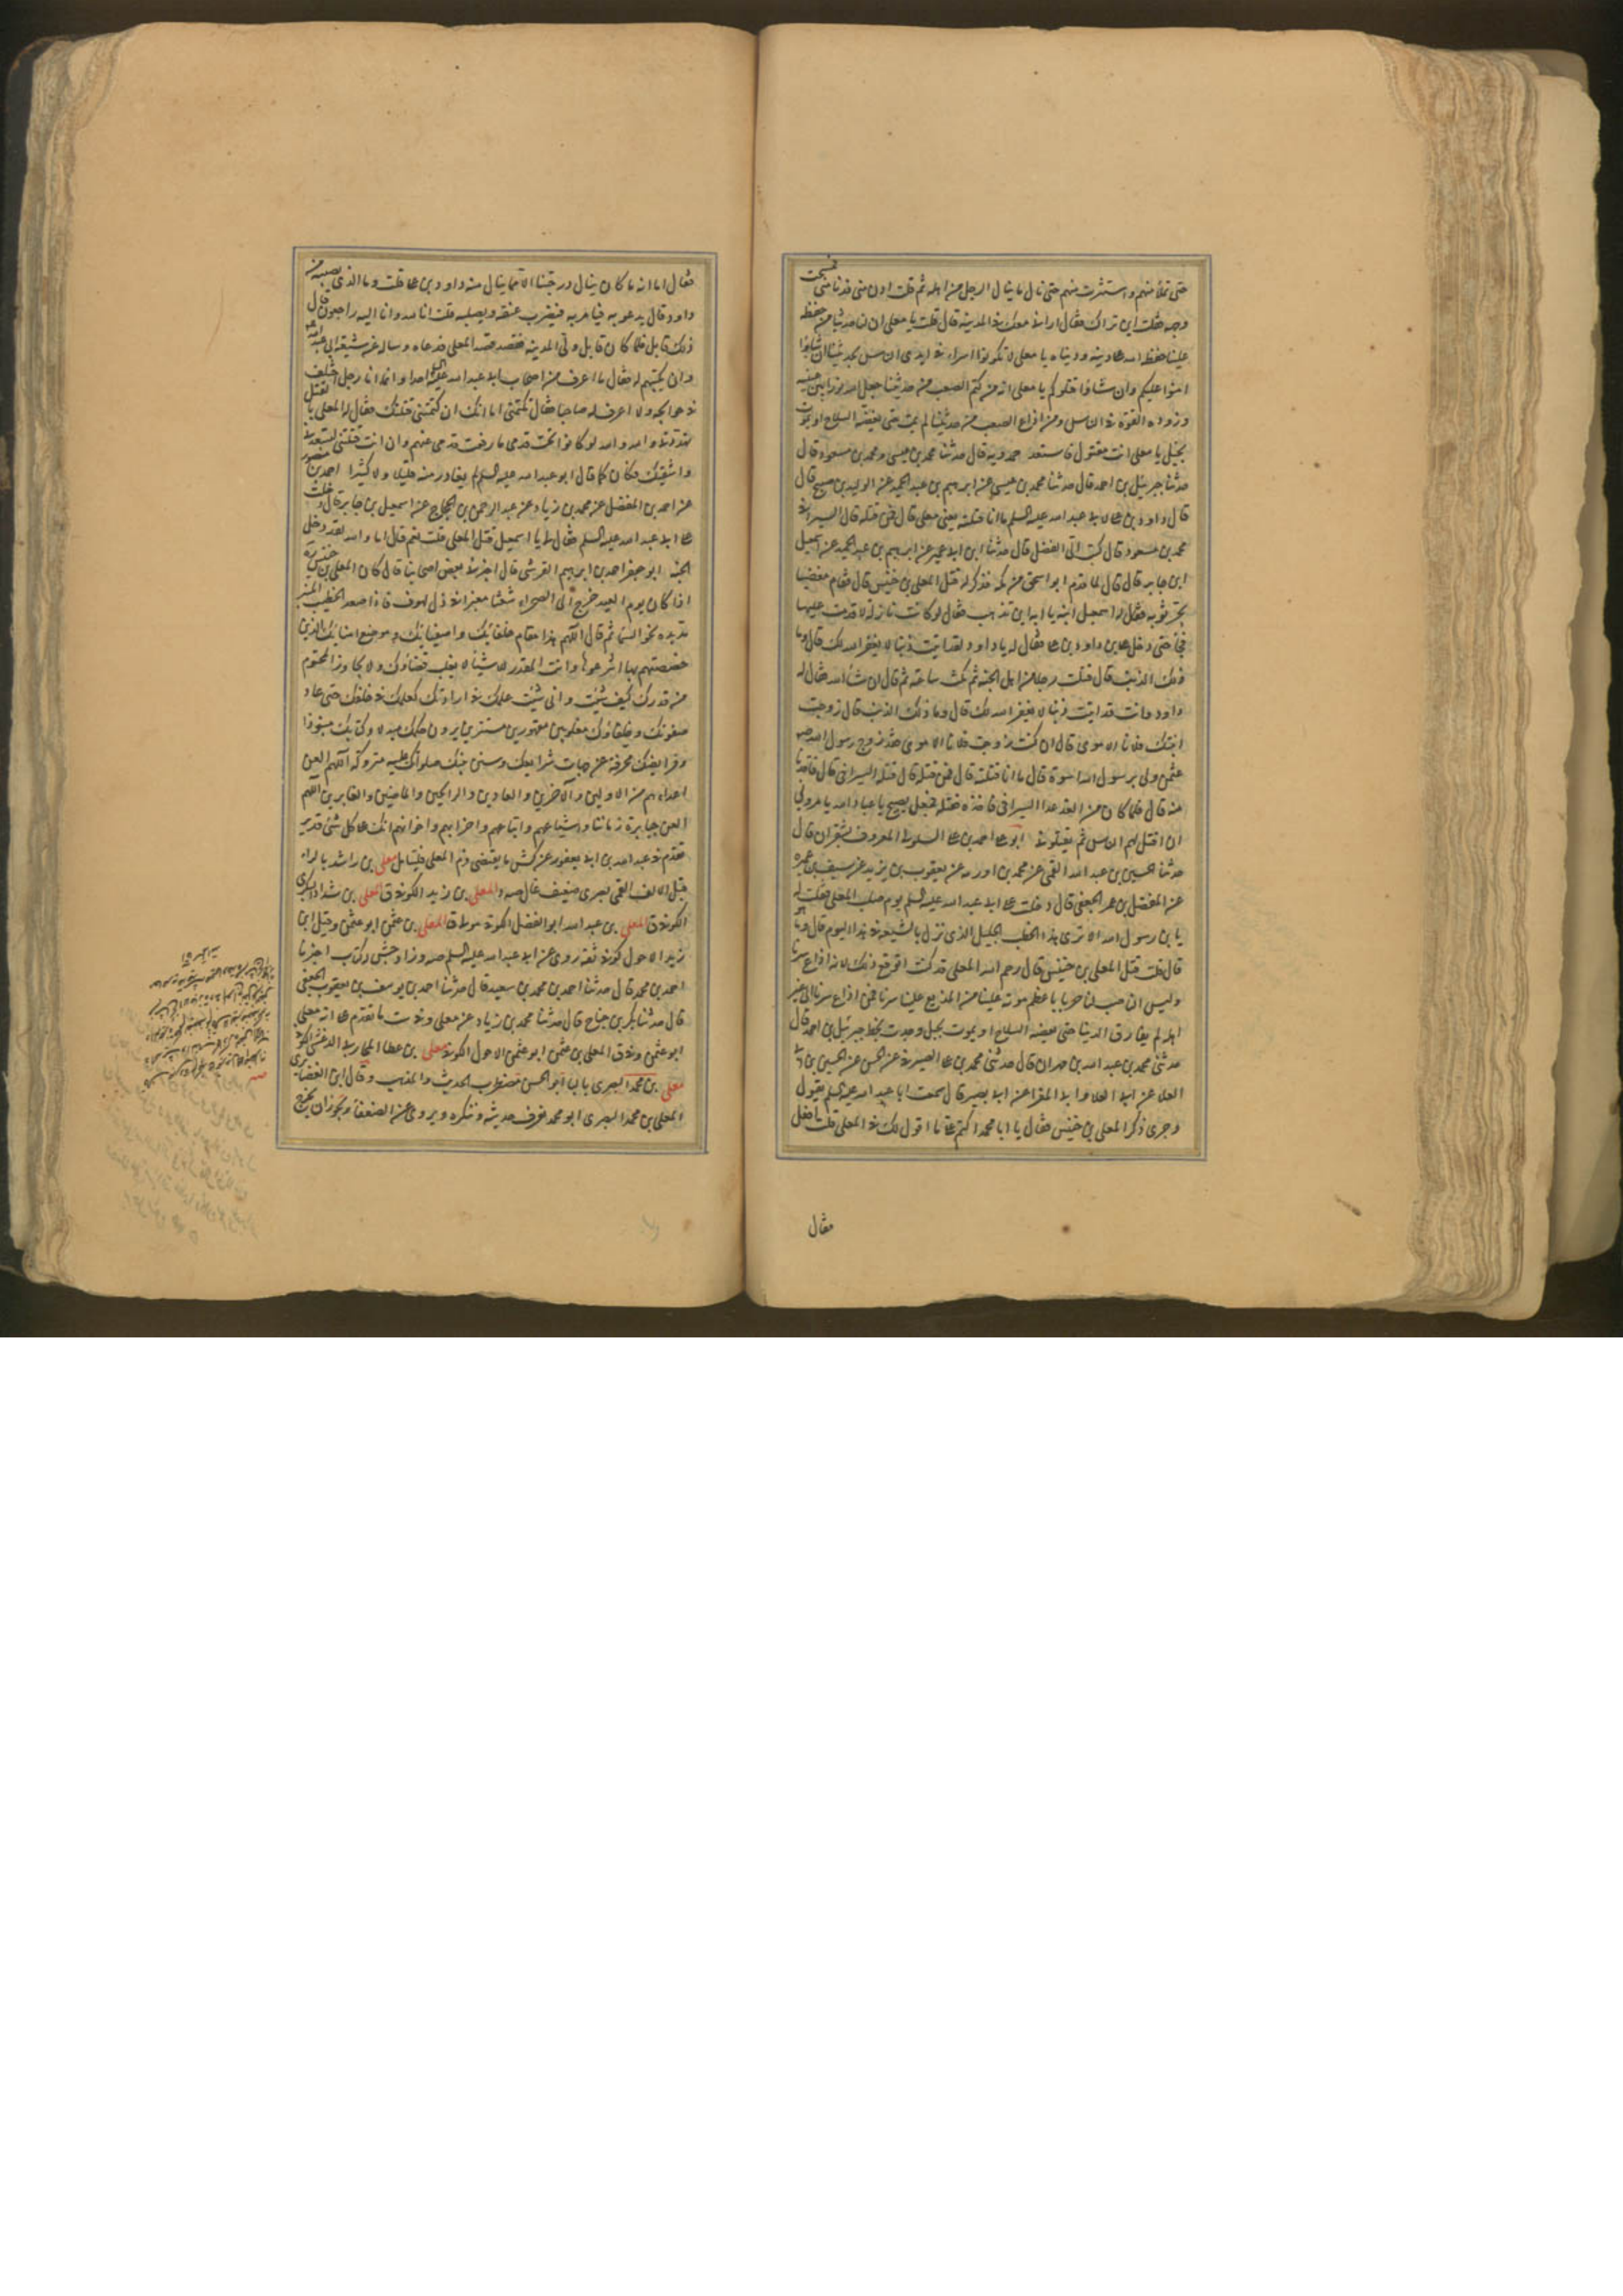 حتى تملأ منهم واستترت منهم حتى نال ما ينال الرجل من اهله ثم قلت ادن منى فدنا منى فمسحت
وجهه فقلت اين تراك فقال ارانى معك فى المدينة قال قلت يا معلى ان لنا حديثا من حفظ
علينا حفظ الله عليه دينه ودنياه يا معلى لا تكونوا اسراء فى ايدى الناس بحديثنا ان شاؤا
امنوا عليكم وان شاؤا قتلوكم يا معلى انه من كتم الصعب من حديثنا جعل الله نورا بين عينيه
وزوده القوة فى الناس ومن اذاع الصعب من حديثنا لم يمت حتى يعضه السلاح او يموت
بخبل يا معلى انت مقتول فاستعد حمدويه قال حدثنا محمد بن عيسى ومحمد بن مسعود قال
حدثنا جبرئيل بن احمد قال حدثنا محمد بن عيسى عن ابرهيم بن عبد الحميد عن الوليد بن صبيح قال
قال داود بن على لابى عبد الله عليه السلم ما انا قتلته يعنى معلى قال فمن قتله قال السيرافى
محمد بن مسعود قال كتب الى الفضل قال حدثنا ابن ابى عمير عن ابرهيم بن عبد الحميد عن اسمعيل
ابن جابر قال قال لما قدم ابو اسحق من مكه فذكر له قتل المعلى بن خنيس قال فقام مغضبا
يجر ثوبه فقال له اسمعيل ابنه يا ابه اين تذهب فقال لو كانت نازلة لاقدمت عليها
فجاء حتى دخل على داود بن على فقال له يا داود لقد اتيت ذنبا لا يغفر الله لك قال وما
ذلك الذنب قال قتلت رجلا من اهل الجنة ثم مكث ساعة ثم قال ان شاء الله فقال له
داود وانت قد اتيت ذنبا لا يغفر الله لك قال وما ذلك الذنب قال زوجت
ابنتك فلانا الاموى قال ان كنت زوجت فلانا الاموى فقد زوج رسول الله صه
عثمن ولى برسول الله اسوة قال ما انا قتلته قال فمن قتله قال قتله السيرافى قال فاقدنا
منه قال فلما كان من الغد غدا السيرافى فاخذه فقتله فجعل يصيح يا عباد الله يامرونى
ان اقتل لهم الناس ثم يقتلونى ابو على احمد بن على السلولى المعروف بشقران قال
حدثنا الحسين بن عبد الله القمى عن محمد بن اورمه عن يعقوب بن يزيد عن سيف بن عميره
عن المفضل بن عمر الجعفى قال دخلت على ابى عبد الله عليه السلم يوم صلب المعلى فقلت له
يا بن رسول الله الا ترى هذا الخطب الجليل الذى نزل بالشيعة فى هذا اليوم قال وما هو
قال قلت قتل المعلى بن خنيس قال رحم الله المعلى قد كنت اتوقع ذلك لانه اذاع سرنا
وليس الناصب لنا حربا باعظم مونة علينا من المذيع علينا سرنا فمن اذاع سرنا الى غير
اهله لم يفارق الدنيا حتى يعضه السلاح او يموت بخبل وجدت بخط جبرئيل بن احمد قال
حدثنى محمد بن عبد الله بن مهران قال حدثنى محمد بن على الصيرفى عن الحسن عن الحسين بن ابى
العلا عن ابى العلا وابى المغرا عن ابى بصير قال سمعت ابا عبد الله عليه السلم يقول
وجرى ذكر المعلى بن خنيس فقال يا ابا محمد اكتم على ما اقول لك فى المعلى قلت افعل
فقال
فقال اما انه ما كان ينال درجتنا الا بما ينال منه داود بن على قلت وما الذى يصيبه من
داود قال يدعو به فيامر به فيضرب عنقه ويصلبه قلت انا لله وانا اليه راجعون قال
ذلك قابل فلما كان قابل ولى المدينة فقصد قصد المعلى فدعاه وساله عن شيعة ابى عبد الله
وان يكتبهم له فقال ما اعرف من اصحاب ابى عبد الله عليه السلم احدا وانما انا رجل اختلف
فى حوايجه ولا اعرف له صاحبا فقال تكتمنى اما انك ان كتمتنى قتلتك فقال له المعلى بالقتل
تهددنى والله لو كانوا تحت قدمى ما رفعت قدمى عنهم وان انت قتلتنى لتسعدنى
واشقيك فكان كما قال ابو عبد الله عليه السلم لم يغادر منه قليلا ولا كثيرا احمد بن منصور
عن احمد بن الفضل عن محمد بن زياد عن عبد الرحمن بن الحجاج عن اسمعيل بن جابر قال دخلت
على ابى عبد الله عليه السلم فقال لى يا اسمعيل قتل المعلى قلت نعم قال اما والله لقد دخل
الجنة ابو جعفر احمد بن ابرهيم القرشى قال اخبرنى بعض اصحابنا قال كان المعلى بن خنيس
اذا كان يوم العيد خرج الى الصحراء شعثا مغبرا فى ذل لهوف فاذا صعد الخطيب المنبر
مد يده نحو السماء ثم قال اللهم هذا مقام خلفائك واصفيائك وموضع امنائك الذين
خصصتهم بها انتزعوها وانت المقدر للاشياء لا يغلب قضاؤك ولا يجاوز المحتوم
من قدرك كيف شئت وانى شئت علمك فى ارادتك كعلمك فى خلقك حتى عاد
صفوتك وخلفاؤك مغلوبين مقهورين مستترين يرون حكمك مبدلا وكتابك منبوذا
وفرايضك محرفة عن جهات شرايعك وسنن نبيك صلواتك عليه متروكة اللهم العن
اعداءهم من الاولين والآخرين والغادين والرائحين والماضين والغابرين اللهم
العن جبابرة زماننا واشياعهم واتباعهم واحزابهم واخوانهم انك على كل شئ قدير
تقدم فى عبد الله بن ابى يعفور عن كش ما يقتضى ذم المعلى فليتامل معلى بن راشد بالراء
قبل الالف القمى بصرى ضعيف غال صه والمعلى بن زيد الكوفى ق المعلى بن شداد البكرى
الكوفى ق المعلى بن عبد الله ابو الفضل الكوفى مولاه ق المعلى بن عثمن ابو عثمن وقيل ابن
زيد الاحول كوفى ثقة روى عن ابى عبد الله عليه السلم صه وزاد جش له كتاب اخبرنا
احمد بن محمد قال حدثنا احمد بن محمد بن سعيد قال حدثنا احمد بن يوسف بن يعقوب الجعفى
قال حدثنا بكر بن جناح قال حدثنا محمد بن زياد عن معلى وفى ست ما تقدم على انه معلى
ابو عثمن وفى ق المعلى بن عثمن ابو عثمن الاحول الكوفى معلى بن عطا
معلى بن محمد البصرى بالبا ابو الحسن مضطرب الحديث والمذهب وقال ابن الغضايرى
المعلى بن محمد البصرى ابو محمد نعرف حديثه وننكره ويروى عن الضعفا ويجوز ان يخرج